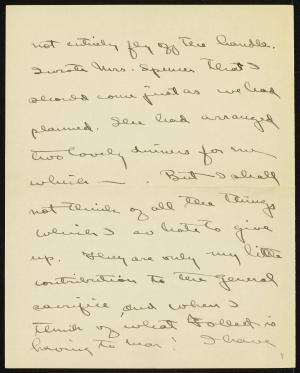 not entirely fly off the handle.
I wrote Mrs. Spencer that I
should come just as we had
planned. She had arranged
two lovely dinners for me
which —. But I shall
not think of all the things
which I so hate to give
up. They are only my little
contribution to the general
sacrifice, and when I
think of what is
having to bear! I have